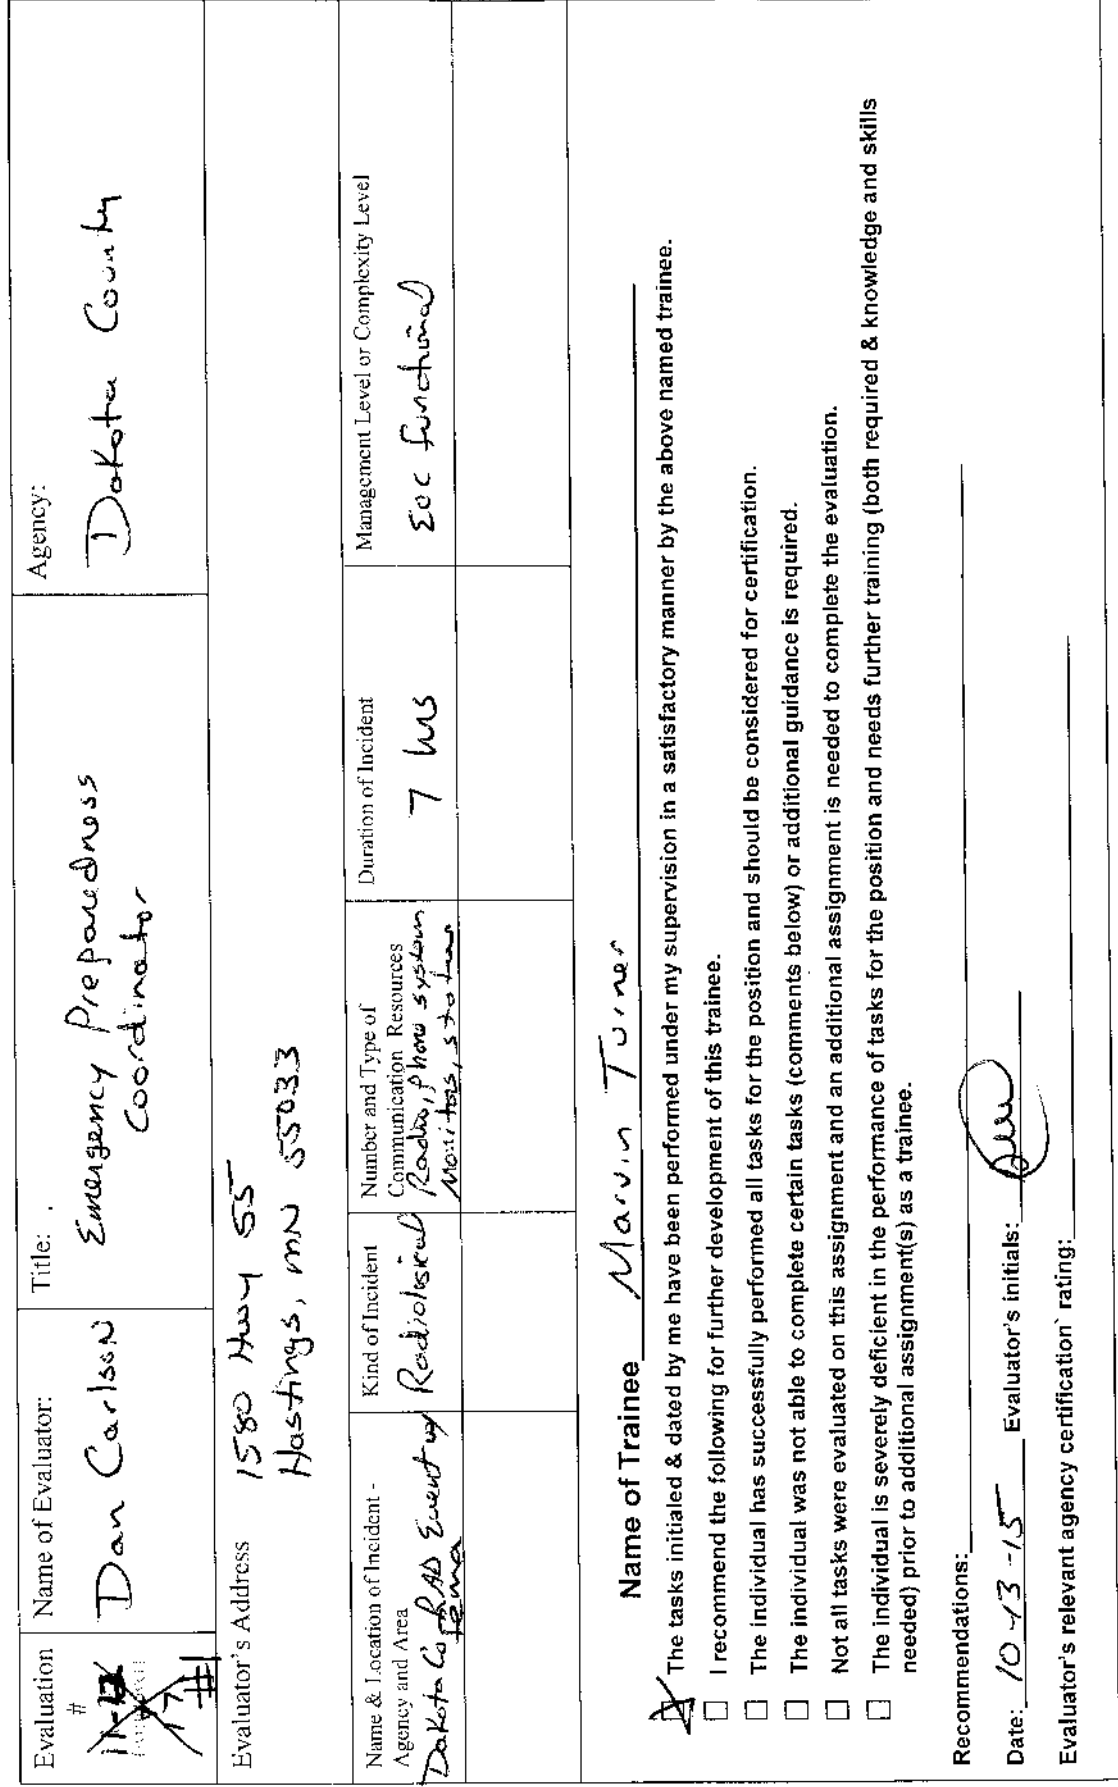 Evaluation
#
#1
Name of Evaluator:
Dan Carlson
Title:
Emergency Preparedness
Coordinator
Agency:
Dakota County
Evaluator's Address
1580 Hwy 55
Hastings, MN 55033
Name & Location of Incident -
Agency and Area
Dakota Co RAD Event w/
Fema
Kind of Incident
Radiological
Number and Type of
Communication Resources
Radio, phone system
Monitors,
Duration of Incident
7 hrs
Management Level or Complexity Level
EOC functional
Name of Trainee Marvin Turner
The tasks initialed & dated by me have been performed under my supervision in a satisfactory manner by the above named trainee.
I recommend the following for further development of this trainee.
The individual has successfully performed all tasks for the position and should be considered for certification.
The individual was not able to complete certain tasks (comments below) or additional guidance is required.
Not all tasks were evaluated on this assignment and an additional assignment is needed to complete the evaluation.
The individual is severely deficient in the performance of tasks for the position and needs further training (both required & knowledge and skills
needed) prior to additional assignment(s) as a trainee.
Recommendations:
Date: 10-13-15 Evaluator's initials:
Evaluator's relevant agency certification` rating: